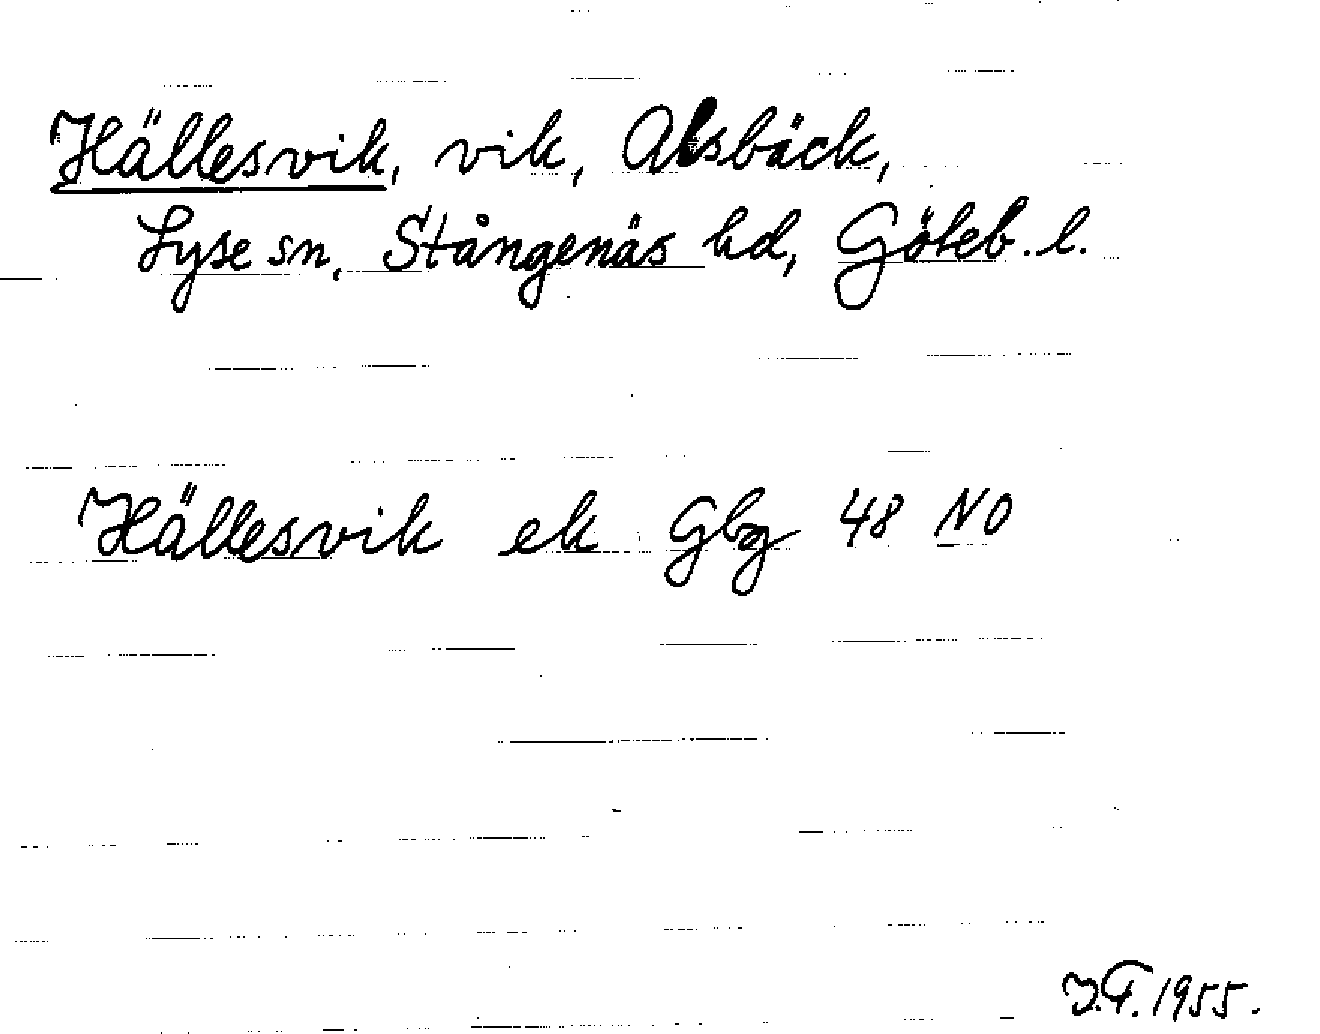 Hällesvik, vik, Alsbäck,
Lyse sn, Stångenäs hd, Göteb. l.
Hällesvik ek Gbg 48 NO
J.F. 1955.